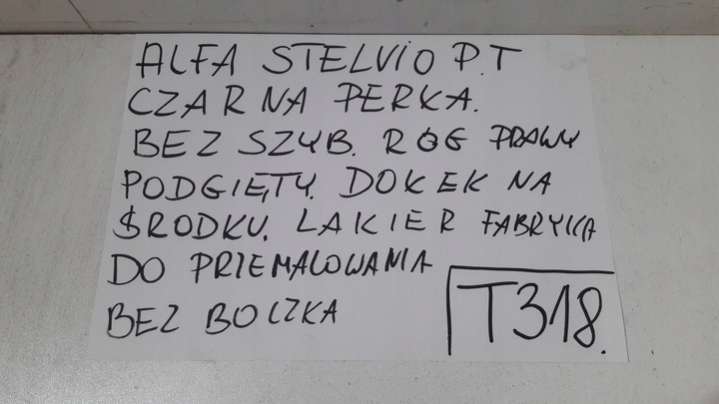 ALFA STELVIO P.T
CZARNA PERKA.
BEZ SZYB. RÓG PRAWY
PODGIĘTY. DOKEK NA
ŚRODKU. LAKIER FABRYKA
DO PRZEMALOWANIA
BEZ BOCZKA
T318.